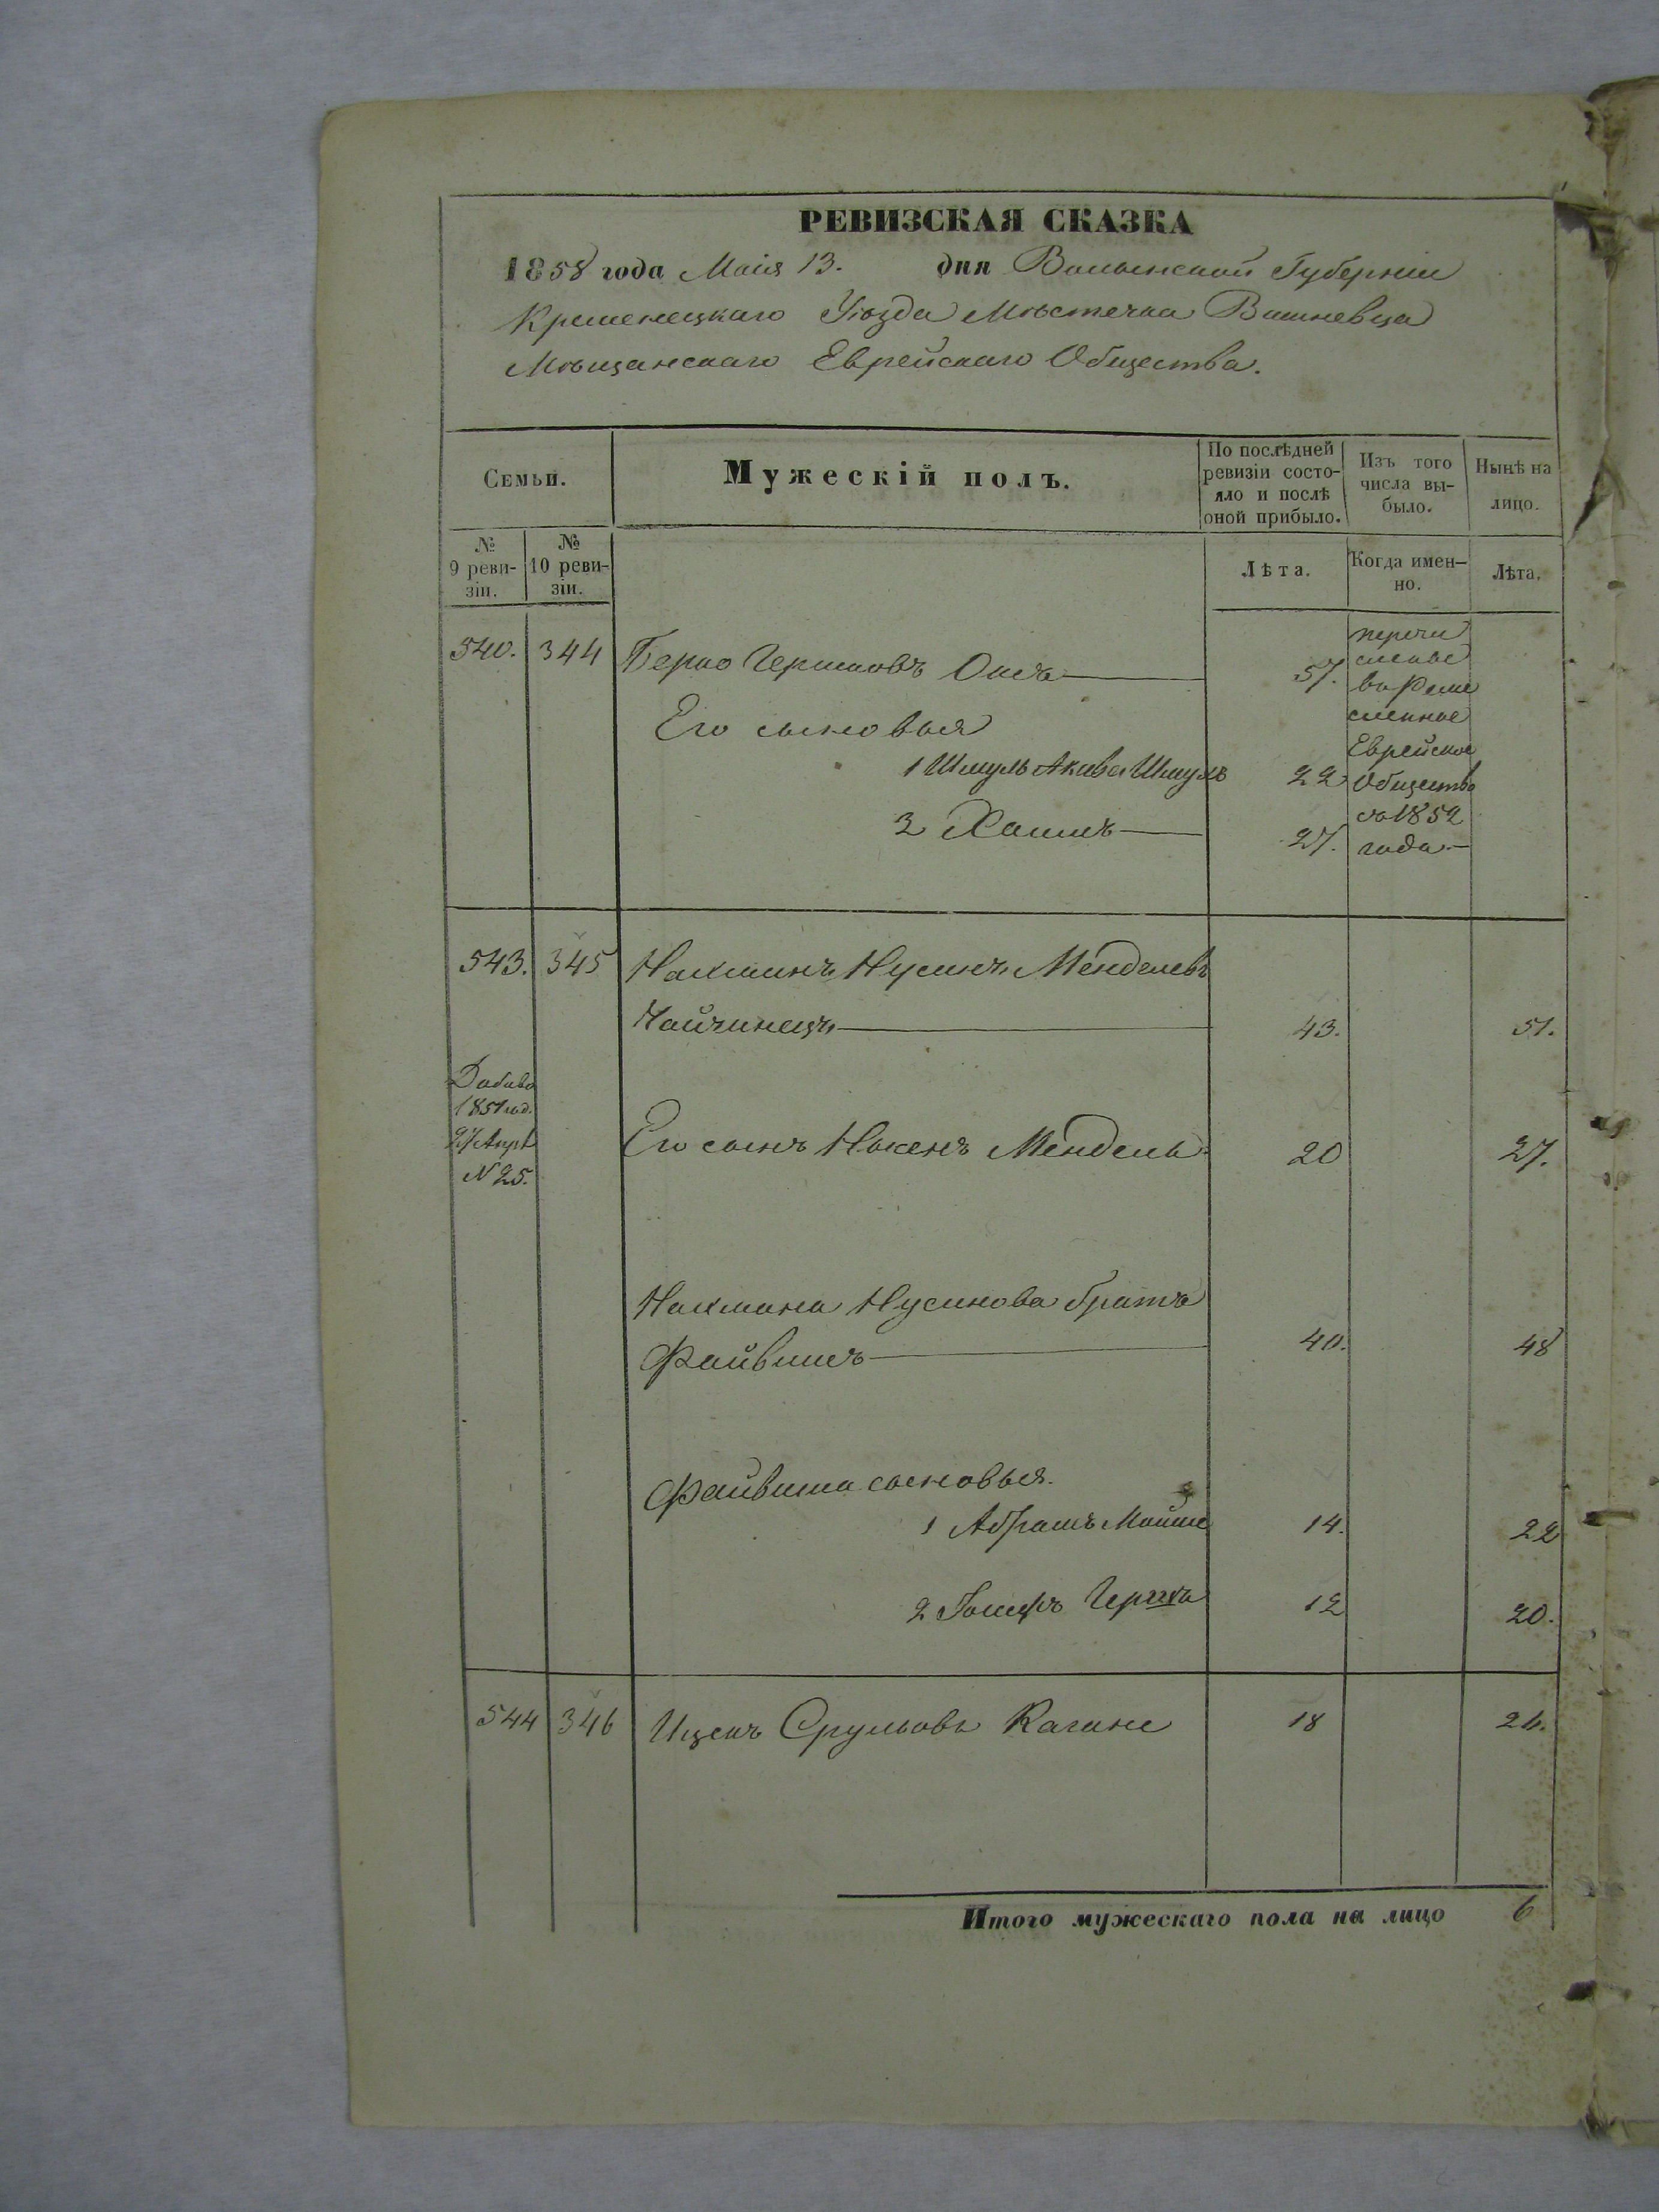 РЕВИЗСКАЯ СКАЗКА
1858 года Маія 13. дня Волынской Губерніи
Кременецкаго Уѣзда Мѣстечка Вишневца
Мѣщанскаго Еврейскаго Общества.
Семьи.
Мужескій полъ.
По послѣдней
ревизіи состо-
яло и послѣ
оной прибыло.
Изъ того
числа вы-
было.
Нынѣ на
лицо.
№
9 реви-
зіи.
№
10 реви-
зіи.
Лѣта.
Когда имен-
но.
Лѣта.
540. 344 Берко Гершковъ 57.
перечи
слены
въ Реме
сленное
Еврейское
Общество
съ 1852
года.—
Его сыновья
1 Шмуль Акива Шмуль 22
2 Хаимъ 27.
543. 345 Нахманъ Нусинъ Менделевъ
Чайчинецъ 43. 51.
1851 год.
27 Апрѣ
N 25.
Его сынъ Мендель. 20 27.
Нахмана Нусинова братъ
Файвишъ 40. 48
Файвиша сыновья.
1 Абрамъ Мойше 14. 22
2 Іосифъ Гершко 12 20.
544 346 Ицекъ Срульовъ Кагане 18 26.
Итого мужескаго пола на лицо 6